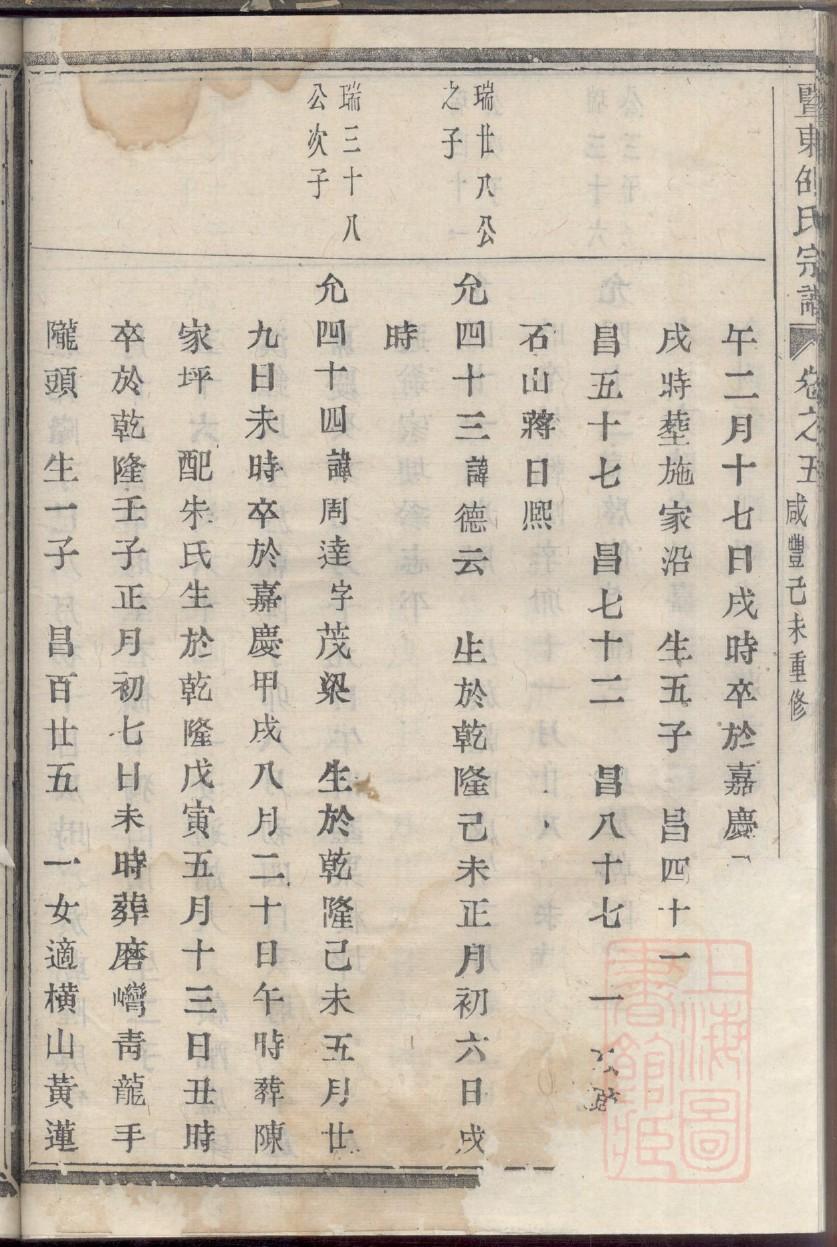 暨東何氏宗譜 卷之五 咸豐己未重修
午二月十七日戌時卒於嘉慶
戌時塟施家沿 生五子 昌四十一
昌五十七 昌七十二 昌八十七 一
石山蔣日熈
瑞廿八公
之子
允四十三諱德云 生於乾隆己未正月初六日戌
時
瑞三十八
公次子
允四十四諱周達字茂梁 生於乾隆己未五月廿
九日未時卒於嘉慶甲戌八月二十日午時葬陳
家坪 配朱氏生於乾隆戊寅五月十三日丑時
卒於乾隆壬子正月初七日未時葬磨㘐靑龍手
隴頭 生一子 昌百廿五 一女適橫山黃蓮
上海圖
書館藏